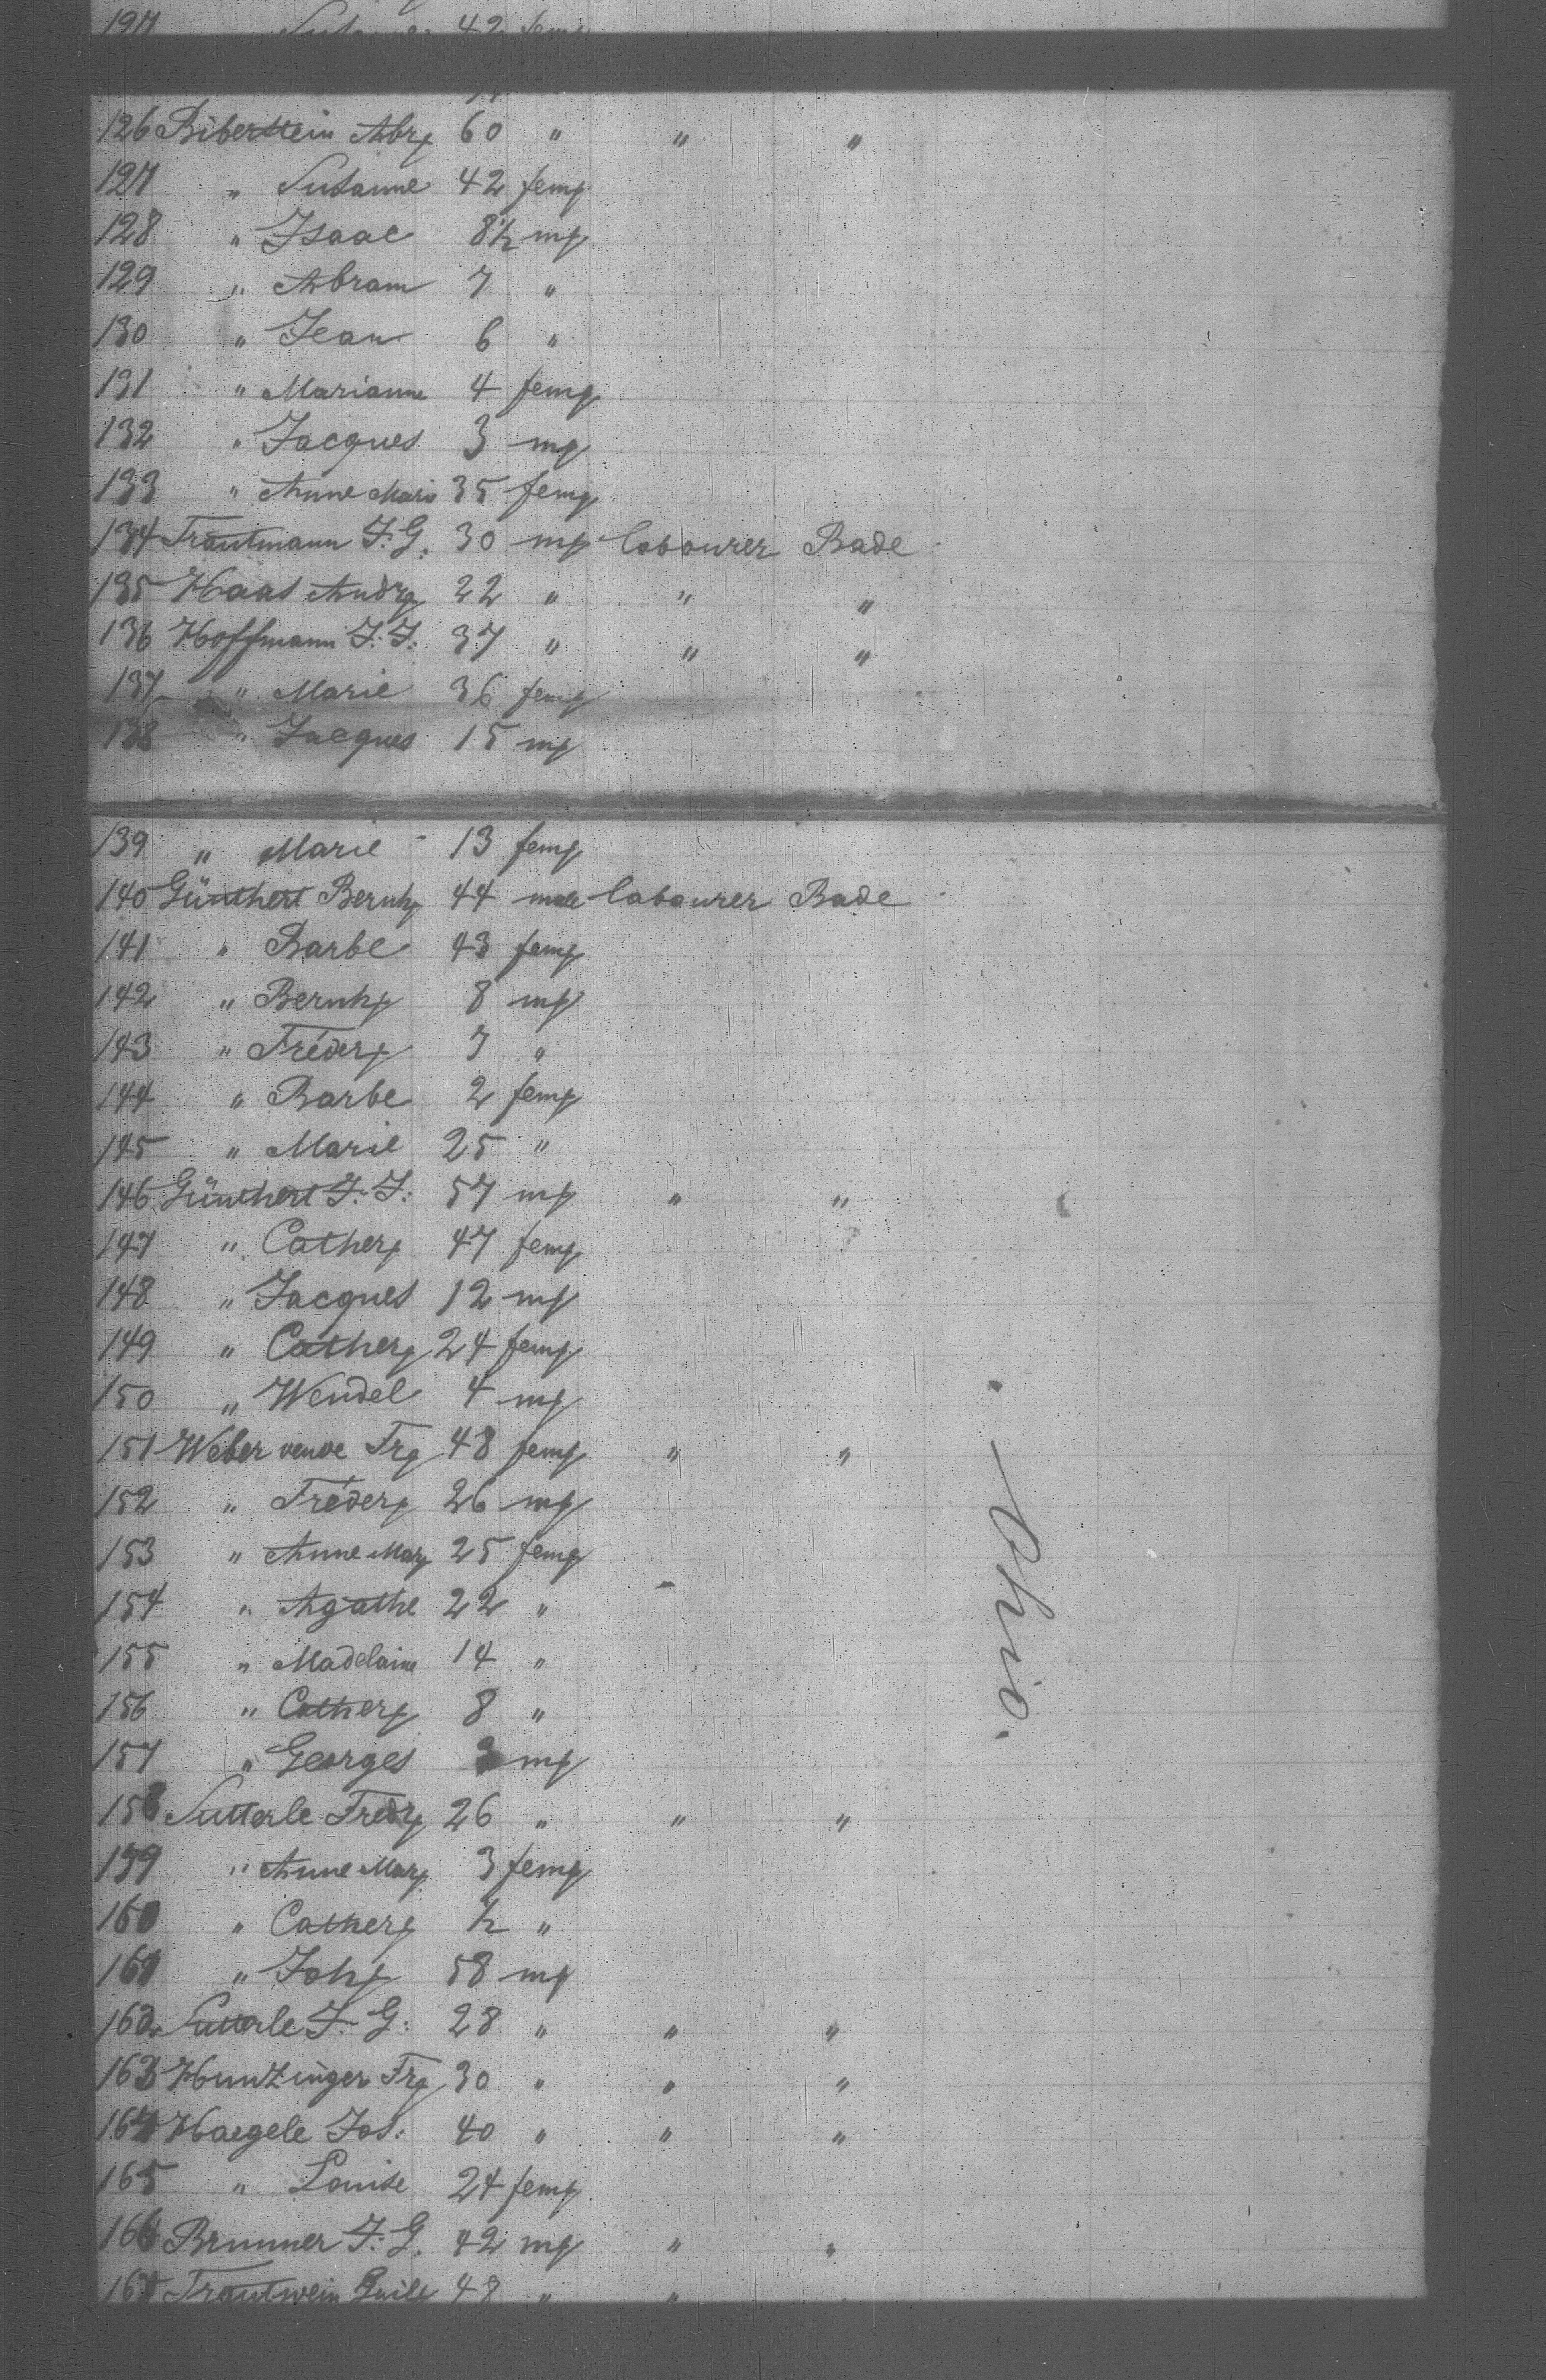 127 Susanne 42 fem
126 Biberstein Abr 60 " " "
127 " Susanne 42 fem
128 " Isaac 8½ m
129 " Abram 7 "
130 " Jean 6 "
131 " Marianne 4 fem
132 " Jacques 3 m
133 " Anne Marie 35 fem
134 Trautmann J. G. 30 m labourer Bade
135 Haas Andr 22 " " "
136 Hoffmann J. J. 37 " " "
137 " Marie 36 fem
138 " Jacques 15 m
139 " Marie 13 fem
140 Günthert Bernh 44 male labourer Bade
141 " Barbe 43 fem
142 " Bernh 8 m
143 " Fréder 7 "
144 " Barbe 2 fem
145 " Marie 25 "
146 Günthert J. J. 57 m " "
147 " Cather 47 fem
148 " Jacques 12 m
149 " Cather 24 fem
150 " Wendel 4 m
151 Weber veuve Fr 48 fem " "
152 " Fréder 26 m
153 " Anne Mar 25 fem
154 " Agathe 22 "
155 " Madelaine 14 "
156 " Cather 8 "
157 " Georges 3 m
158 Sutterle Fredr 26 " " "
159 " Anne Mar 3 fem
160 " Cather ½ "
161 " Joh 58 m
162 Sutterle J. G. 28 " " "
163 Huntzinger Fr 30 " " "
164 Haegele Jos: 40 " " "
165 " Louise 24 fem
166 Brunner J. G. 42 m " "
167 Trautwein Guill 48 " "
Ohio.